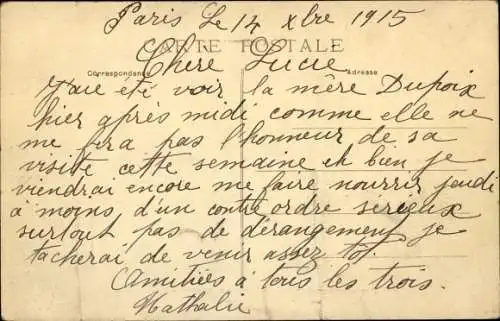 Paris Le 14 Xbre 1915
CARTE POSTALE
Correspondance
Adresse
Chère Lucie
J'aie été voir la mère Dupoix
hier après midi comme elle ne
me fera pas l'honneur de sa
visite cette semaine eh bien je
viendrai encore me faire nourrir jeudi
à moins d'un contre ordre serieux
surtout pas de dérangement je
tacherai de venir assez tot.
Amitiés à tous les trois.
Nathalie